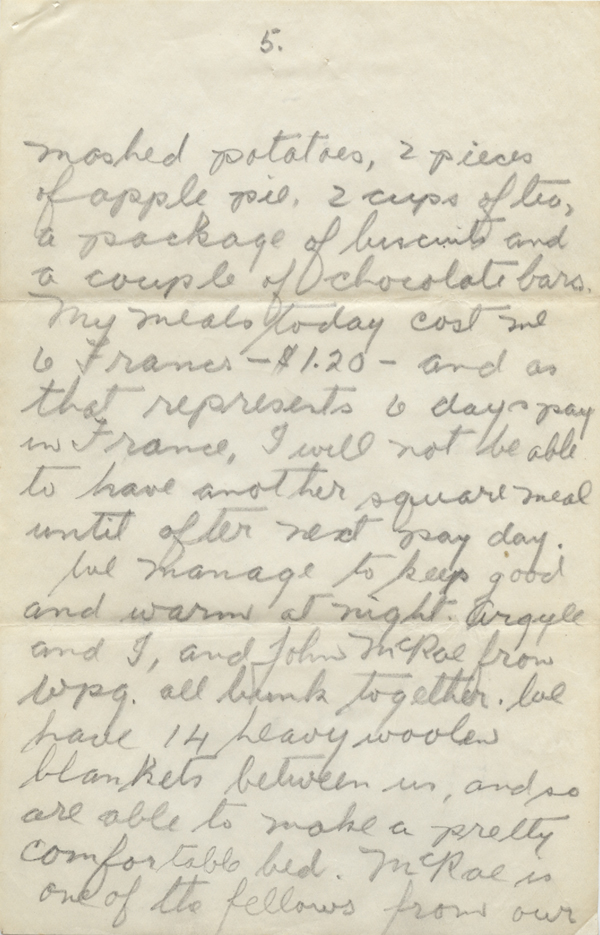 5.
mashed potatoes, 2 pieces
of apple pie, 2 cups of tea,
a package of biscuits and
a couple of chocolate bars.
My meals today cost me
6 Francs - $1.20 - and as
that represents 6 days pay
in France, I will not be able
to have another square meal
until after next pay day.
We manage to keep good
and warm at night. Argyle
and I, and John McRae from
Wpg. all bunk together. We
have 14 heavy woolen
blankets between us, and so
are able to make a pretty
comfortable bed. McRae is
one of the fellows from our